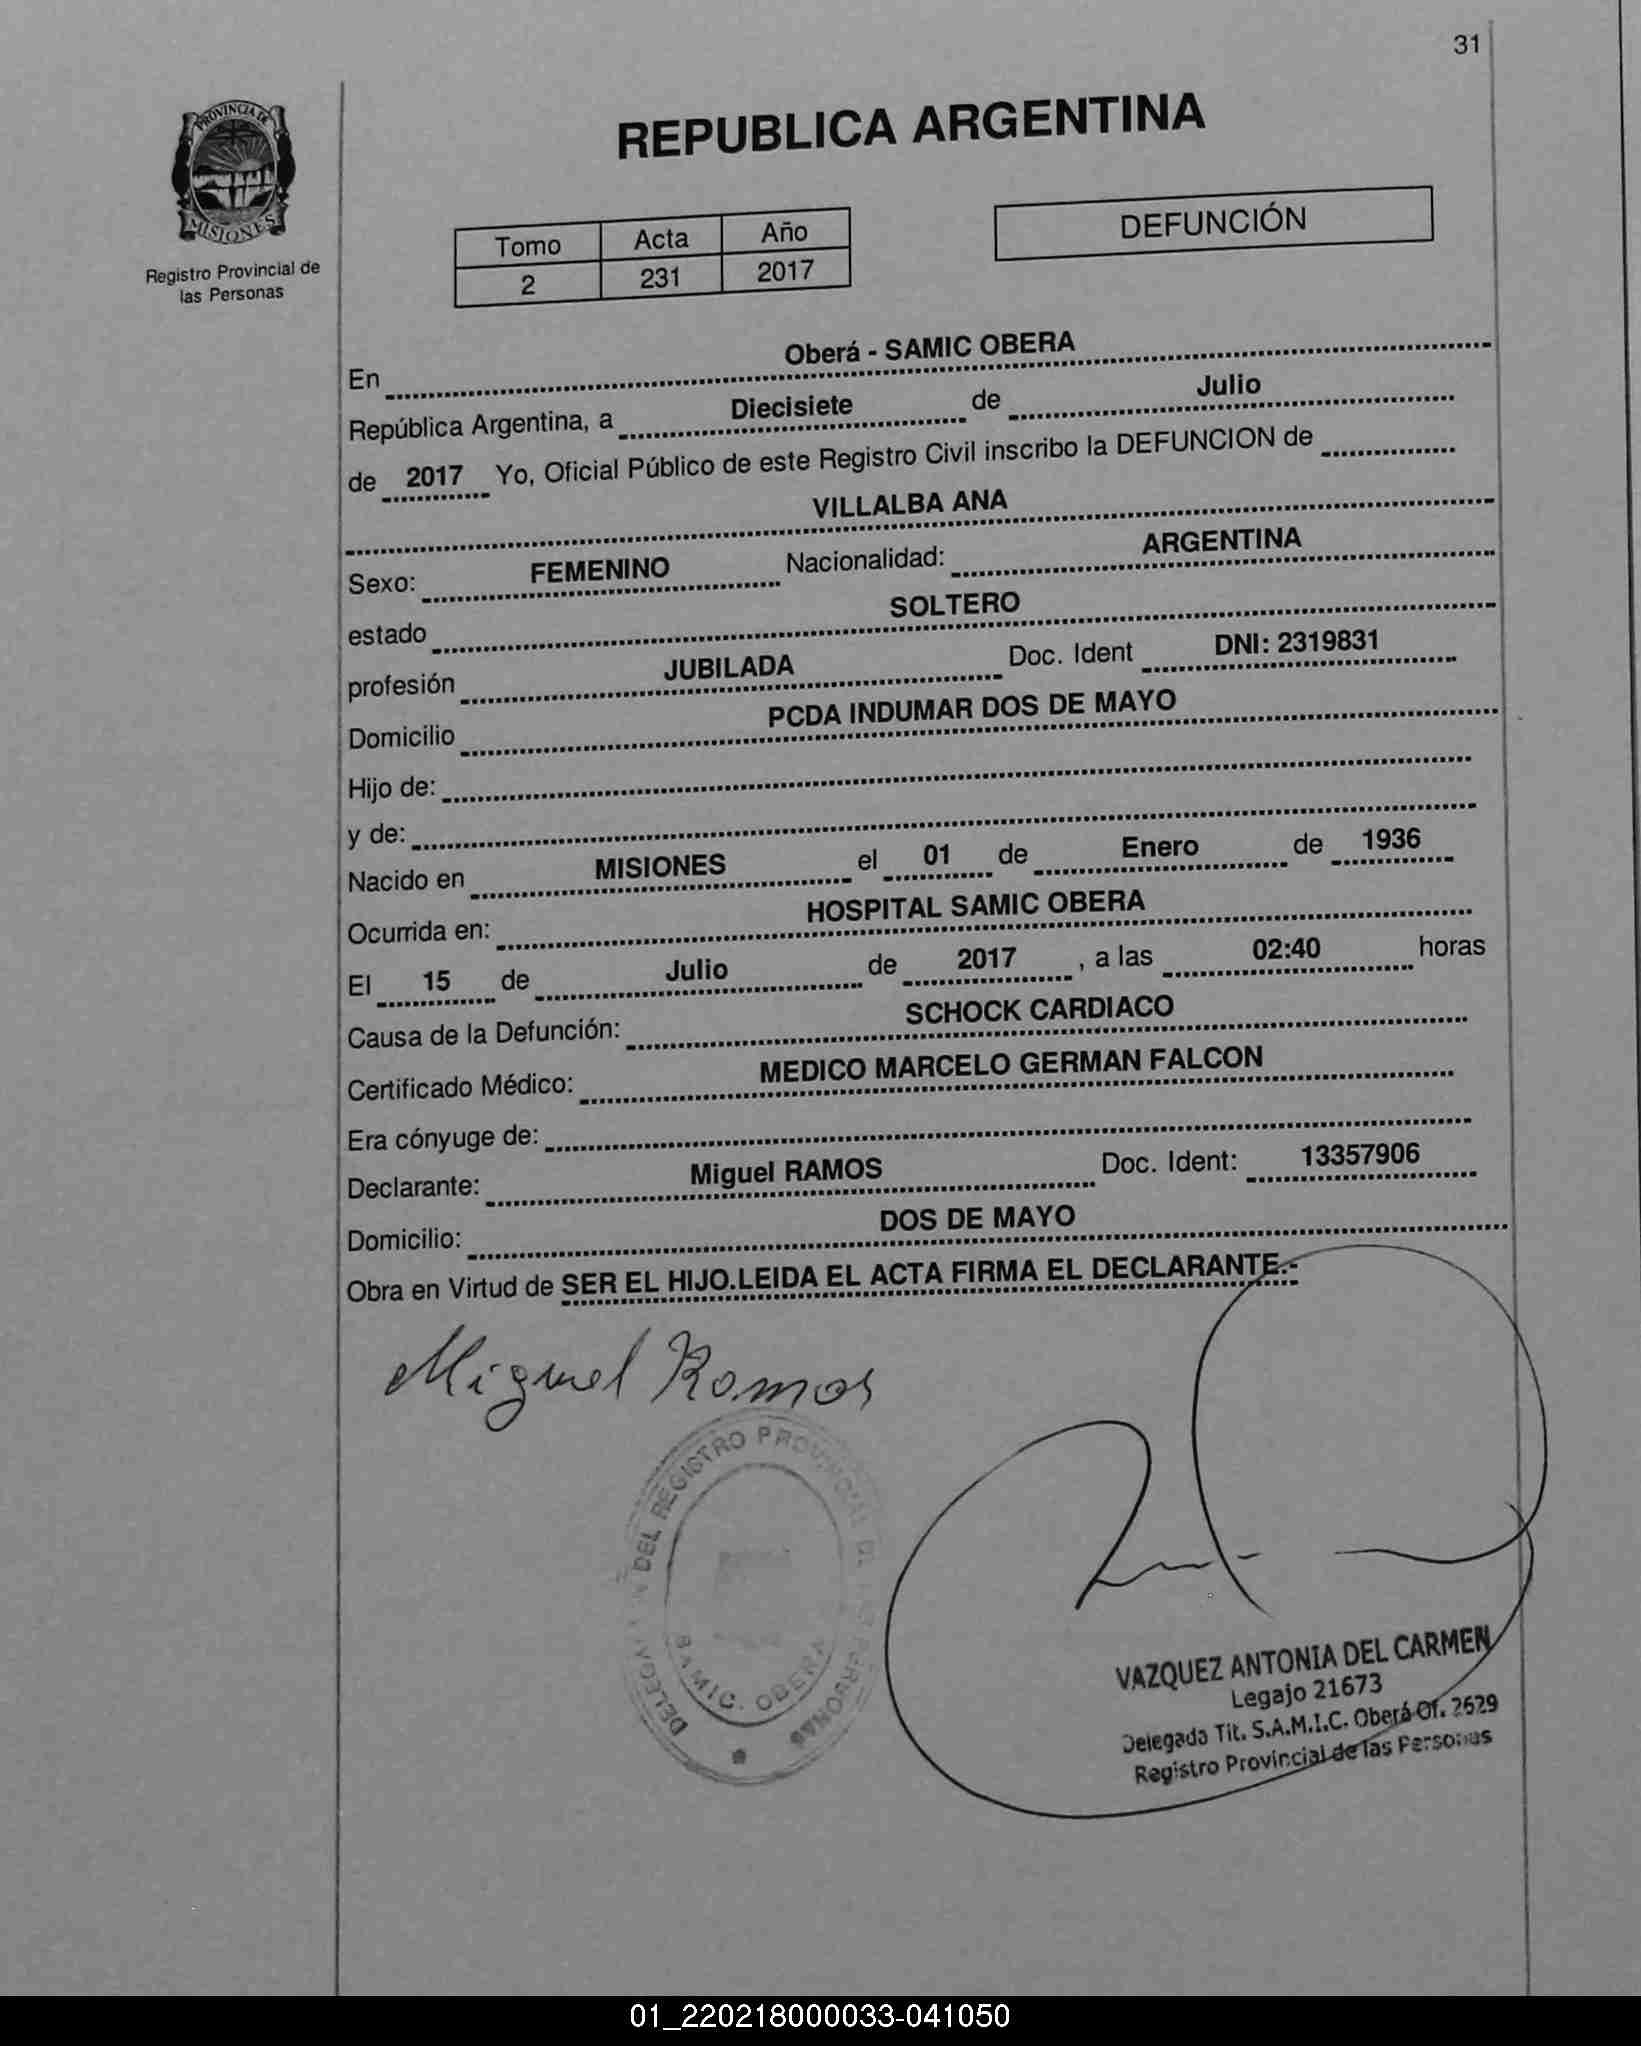 31
PROVINCIA DE
MISIONES
Registro Provincial de
las Personas
REPUBLICA ARGENTINA
Tomo Acta Año
2 231 2017
DEFUNCIÓN
En Oberá - SAMIC OBERA
República Argentina, a Diecisiete de Julio
de 2017 Yo, Oficial Público de este Registro Civil inscribo la DEFUNCION de
VILLALBA ANA
Sexo: FEMENINO Nacionalidad: ARGENTINA
estado SOLTERO
profesión JUBILADA Doc. Ident DNI: 2319831
Domicilio PCDA INDUMAR DOS DE MAYO
Hijo de:
y de:
Nacido en MISIONES el 01 de Enero de 1936
Ocurrida en: HOSPITAL SAMIC OBERA
El 15 de Julio de 2017 , a las 02:40 horas
Causa de la Defunción: SCHOCK CARDIACO
Certificado Médico: MEDICO MARCELO GERMAN FALCON
Era cónyuge de:
Declarante: Miguel RAMOS Doc. Ident: 13357906
Domicilio: DOS DE MAYO
Obra en Virtud de SER EL HIJO.LEIDA EL ACTA FIRMA EL DECLARANTE.-
Miguel Ramos
DEL REGISTRO PROVINCIAL DE LAS PERSONAS
SAMIC. OBERA
VAZQUEZ ANTONIA DEL CARMEN
Legajo 21673
Delegada Tit. S.A.M.I.C. Oberá Of. 2629
Registro Provincial de las Personas
01_220218000033-041050